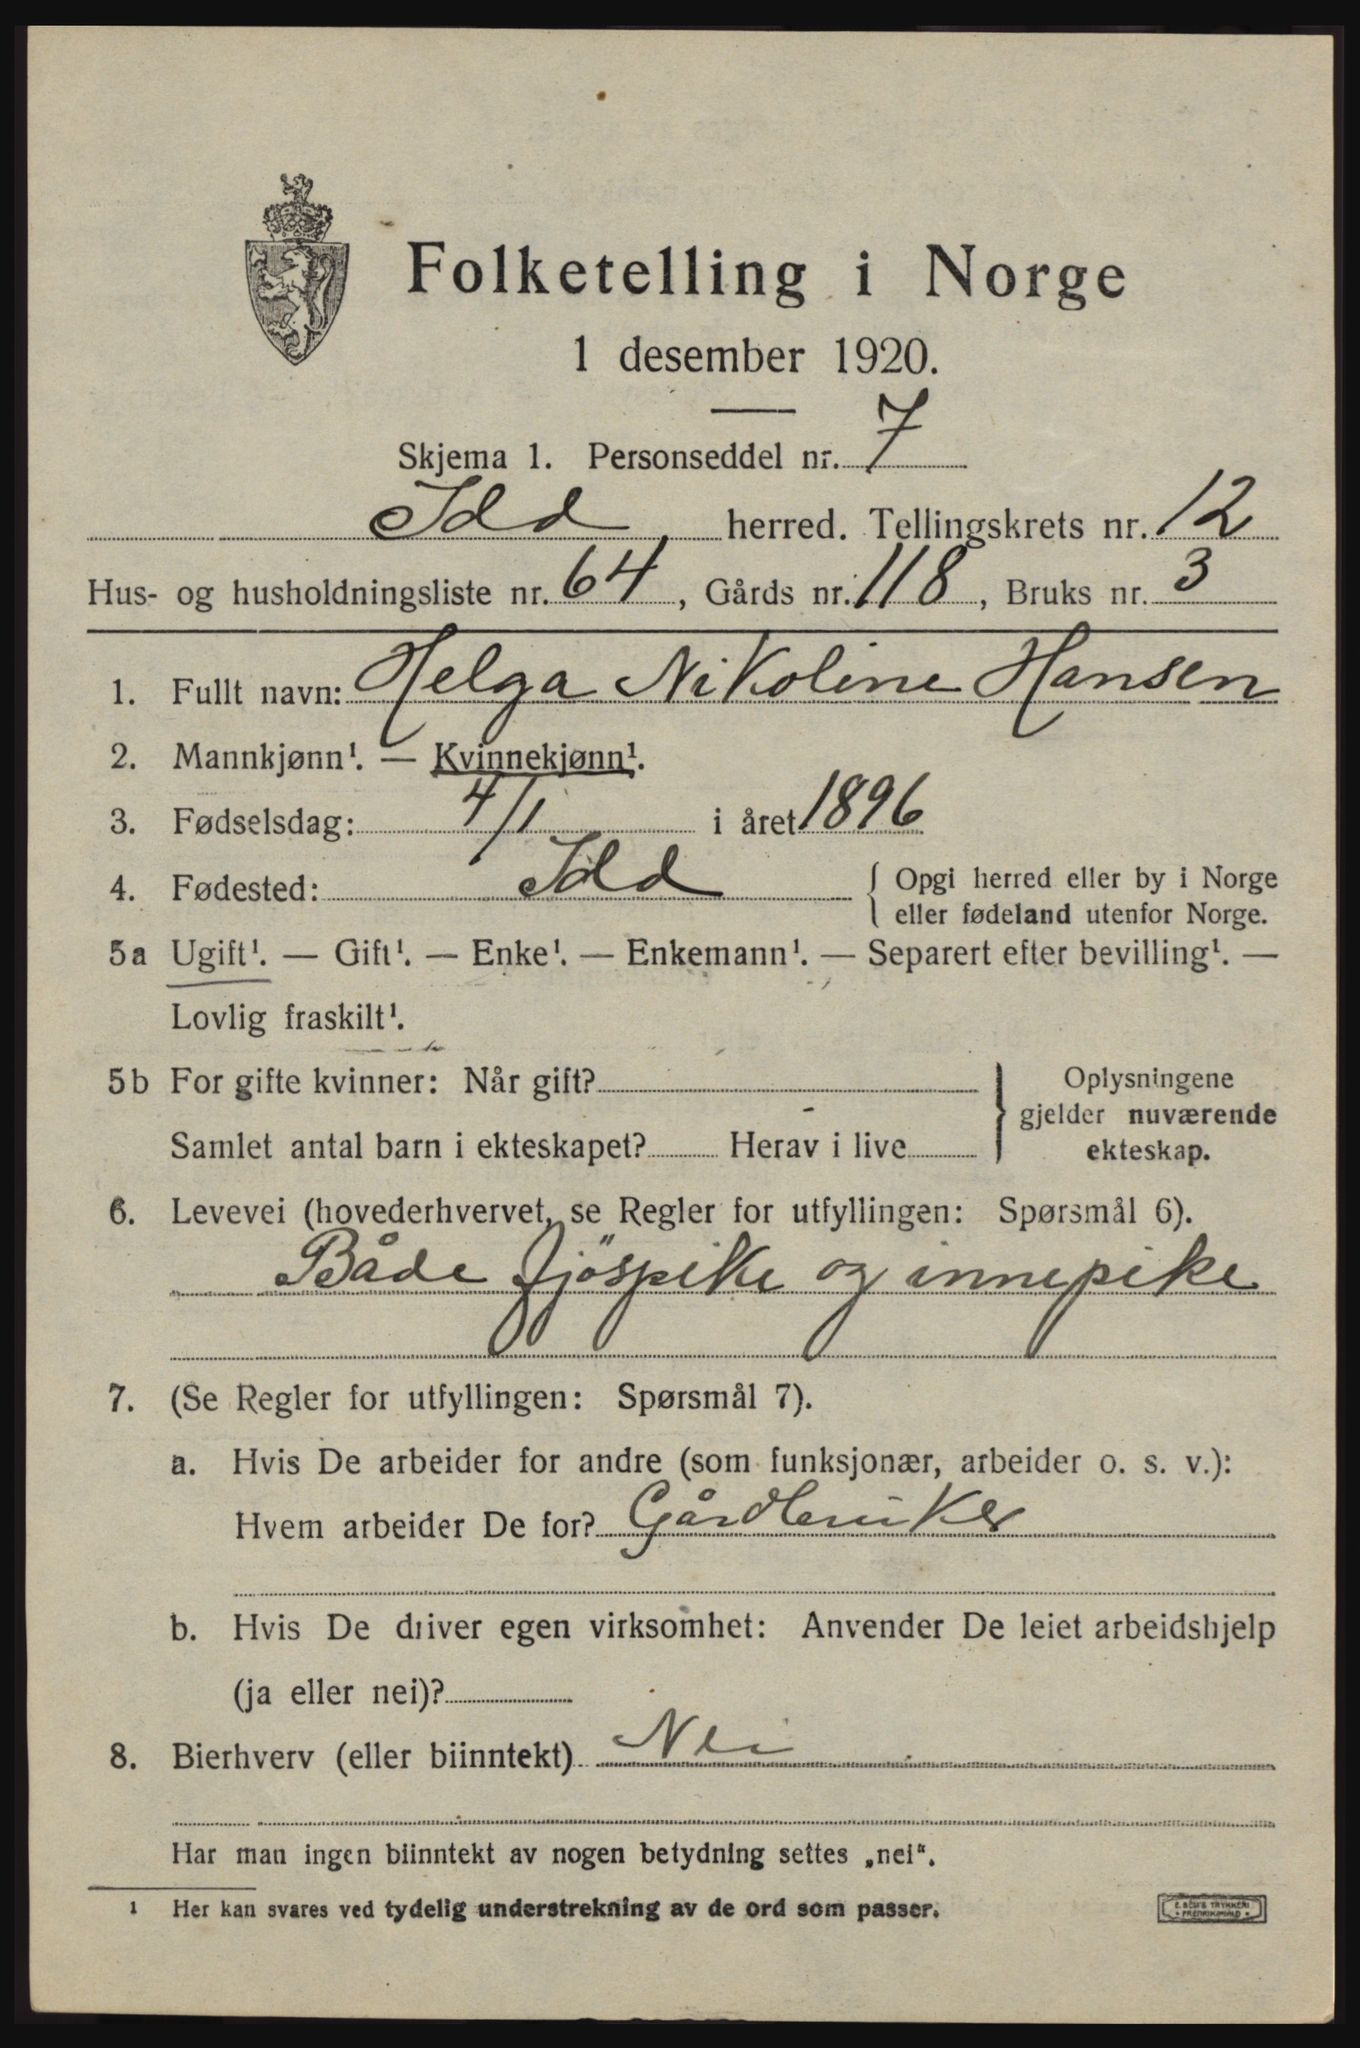 Folketelling i Norge
1 desember 1920.
Skjema 1. Personseddel nr. 7
Idd herred. Tellingskrets nr. 12
Hus- og husholdningsliste nr. 64, Gårds nr. 118, Bruks nr. 3
1. Fullt navn: Helga Nikoline Hansen
2. Mannkjønn¹. — Kvinnekjønn¹.
3. Fødselsdag: 4/1 i året 1896
4. Fødested: Idd { Opgi herred eller by i Norge
eller fødeland utenfor Norge.
5a Ugift¹. — Gift¹. — Enke¹. — Enkemann¹. — Separert efter bevilling¹. —
Lovlig fraskilt¹.
5b For gifte kvinner: Når gift?
Samlet antal barn i ekteskapet? Herav i live
} Oplysningene
gjelder nuværende
ekteskap.
6. Levevei (hovederhvervet, se Regler for utfyllingen: Spørsmål 6).
Både fjöspike og innepike
7. (Se Regler for utfyllingen: Spørsmål 7).
a. Hvis De arbeider for andre (som funksjonær, arbeider o. s. v.):
Hvem arbeider De for? Gårdbruker
b. Hvis De driver egen virksomhet: Anvender De leiet arbeidshjelp
(ja eller nei)?
8. Bierhverv (eller biinntekt) Nei
Har man ingen biinntekt av nogen betydning settes „nei“.
¹ Her kan svares ved tydelig understrekning av de ord som passer.
E. SEM'S TRYKKERI
FREDRIKSHALD